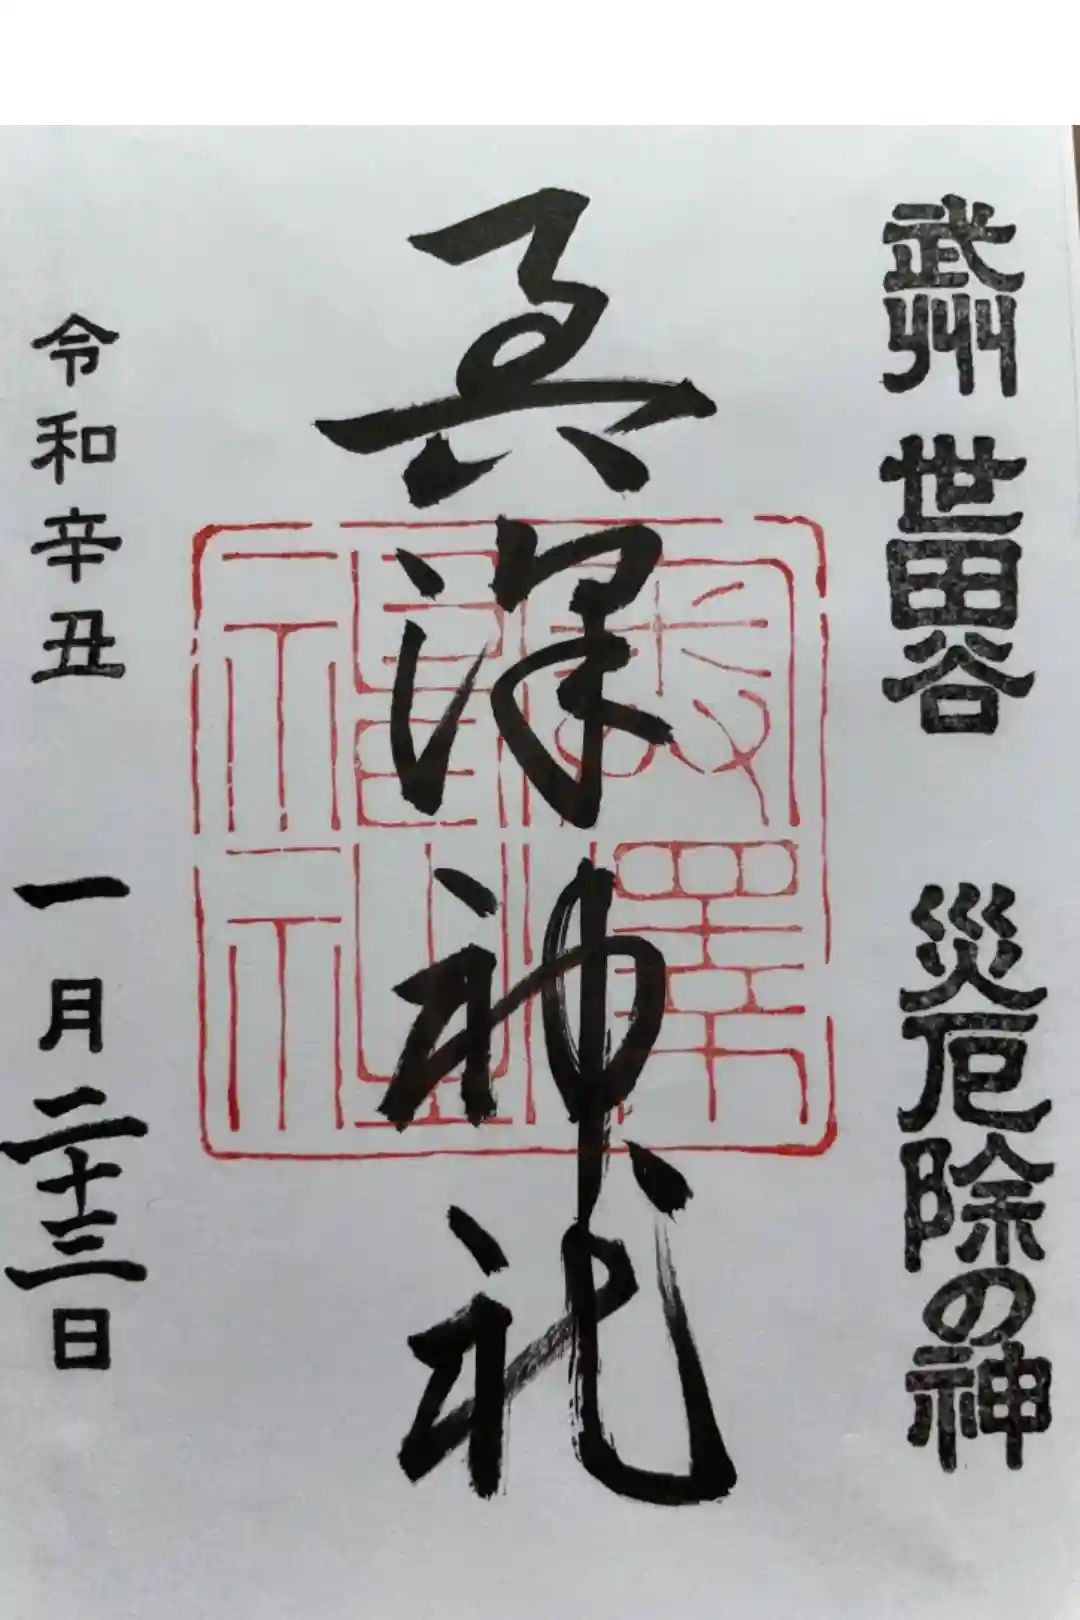 武州 世田谷 災厄除の神
奥澤神社
奥澤神社
令和辛丑 一月二十三日